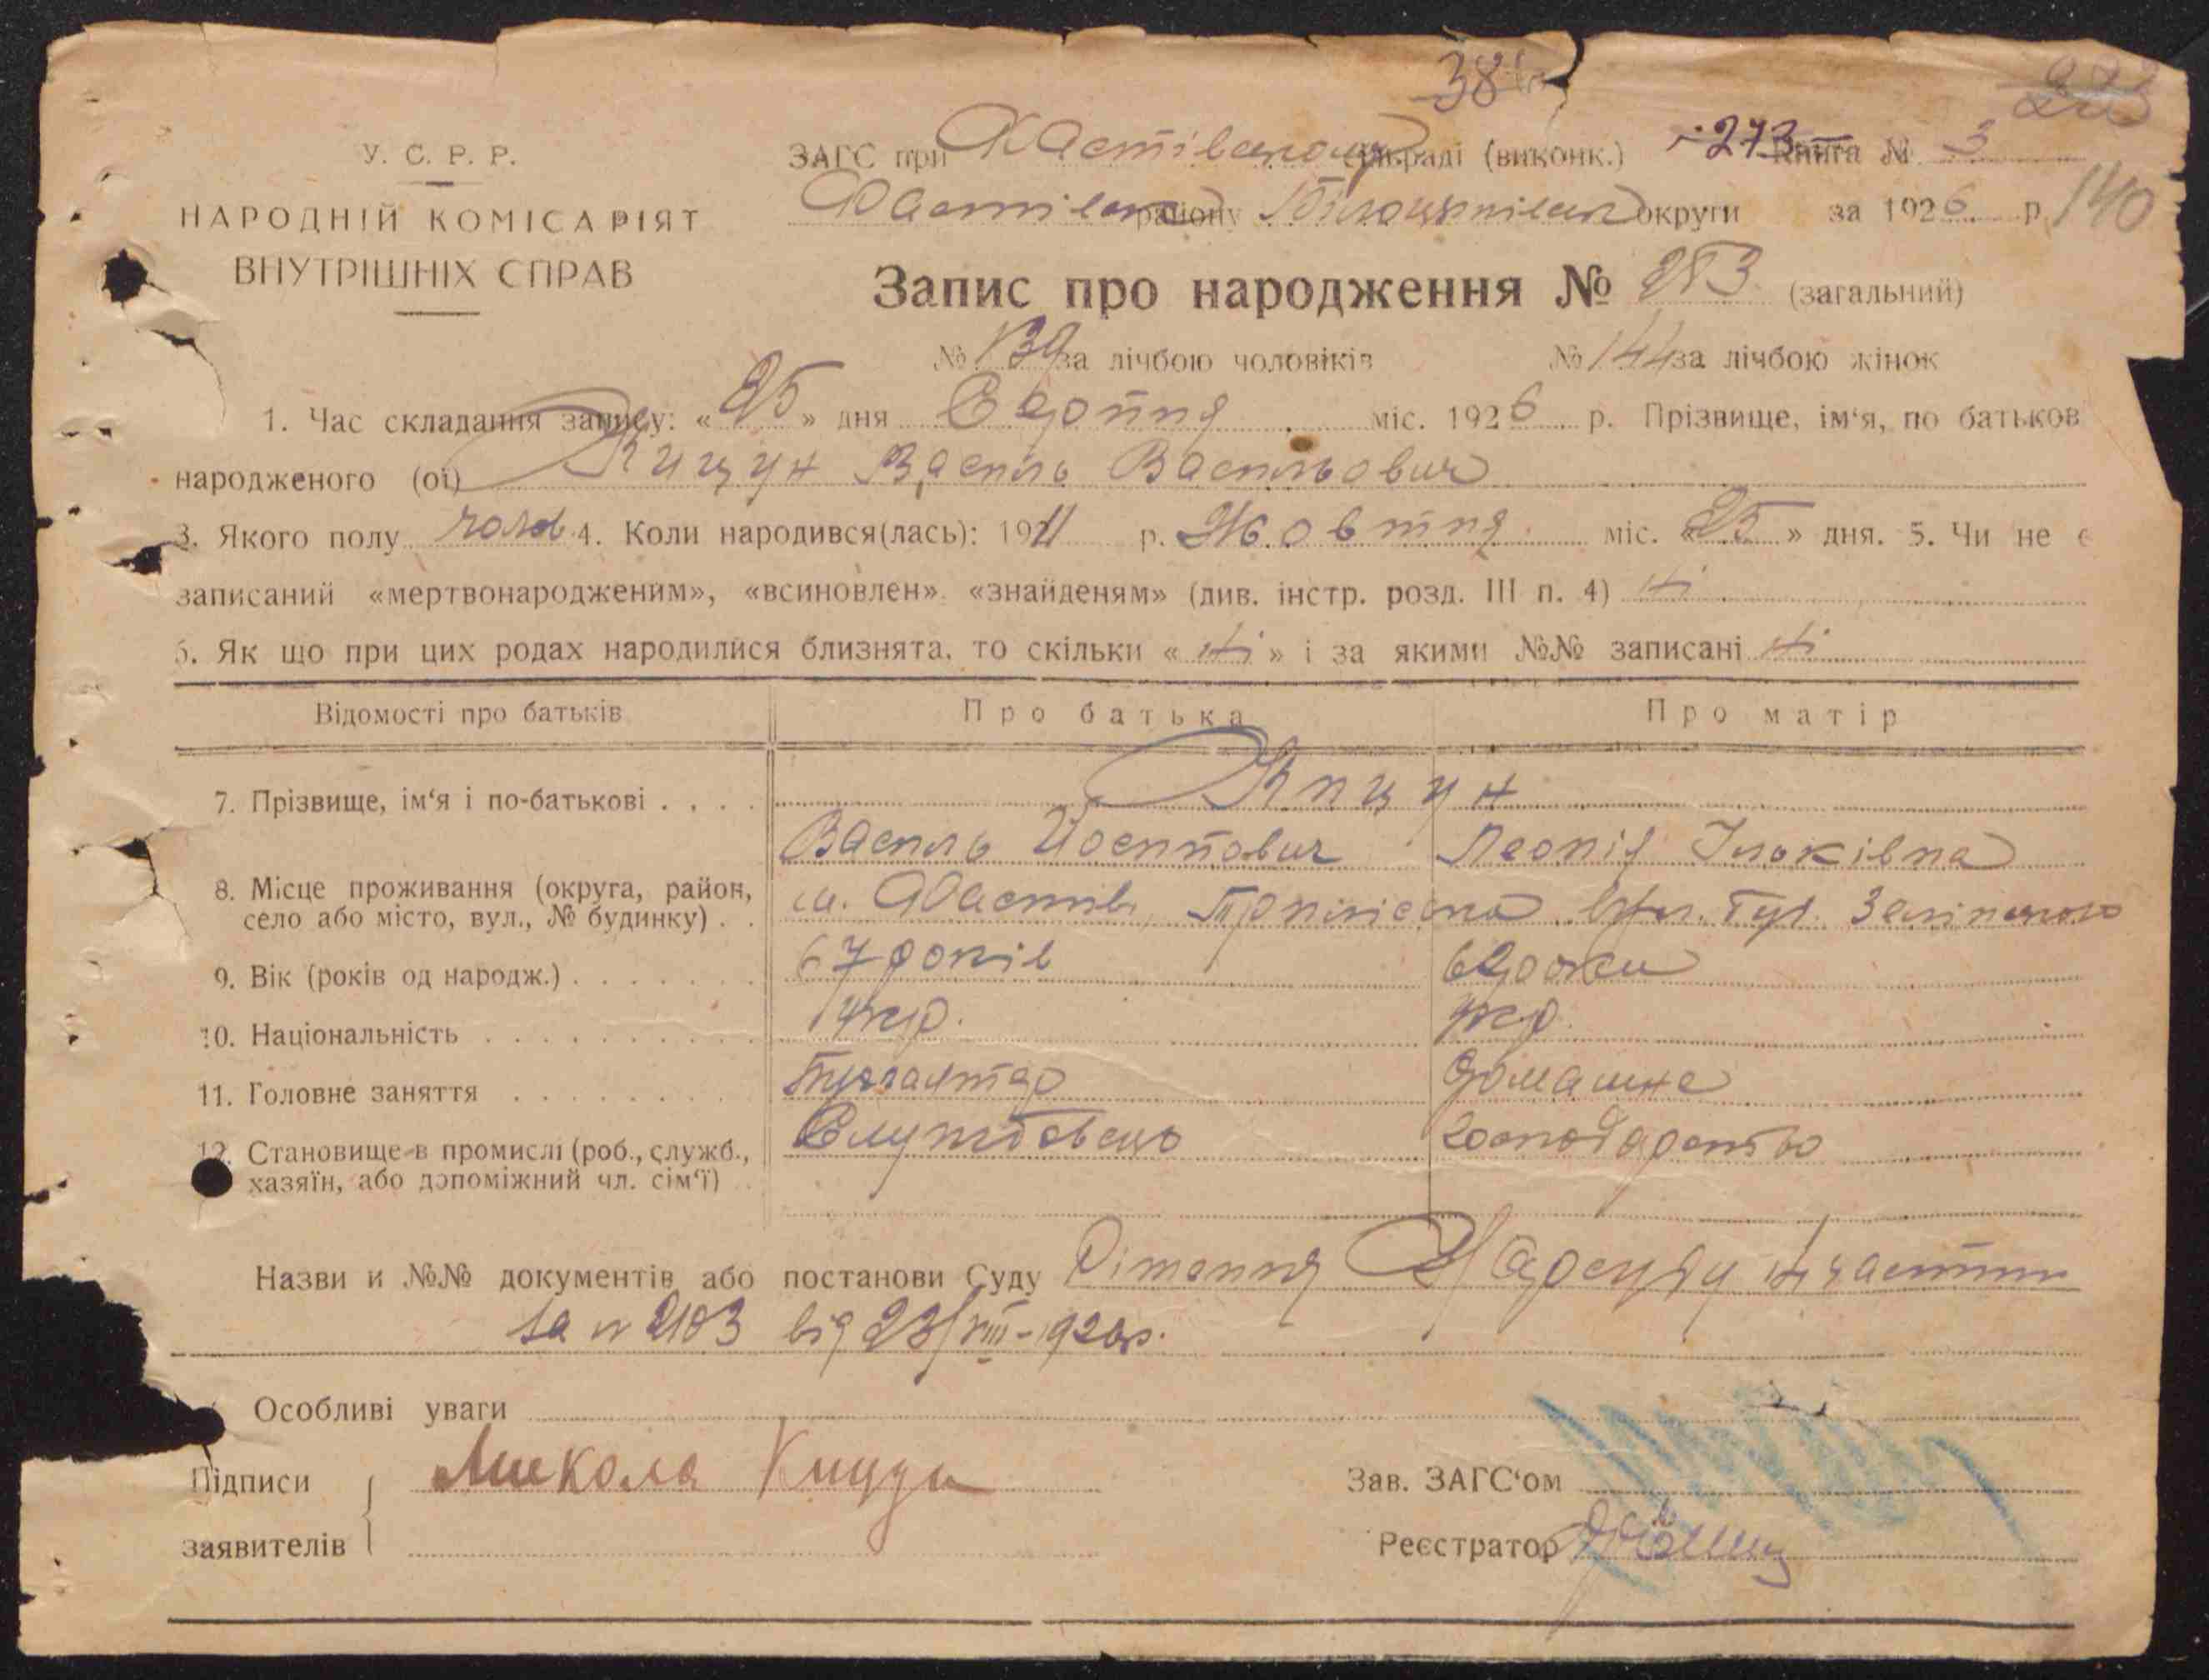 38
У. С. Р. Р.
НАРОДНІЙ КОМІСАРІЯТ
ВНУТРІШНІХ СПРАВ
ЗАГС при Хвастівському сільраді (виконк.) 273 Книга № 3
Фастівськ району Білоцерківськ округи за 1926 р. 140
Запис про народження № 283 (загальний)
№ 139 за лічбою чоловіків № 144 за лічбою жінок
1. Час складання запису: «25» дня Серпня міс. 1926 р. Прізвище, ім'я, по батьков
народженого (ої) Кицун Василь Васильович
3. Якого полу чолов 4. Коли народився(лась): 1911 р. Жовтня міс. «25» дня. 5. Чи не є
записаний «мертвонародженим», «всиновлен» «знайденям» (див. інстр. розд. III п. 4) ні
6. Як що при цих родах народилися близнята, то скільки «ні» і за якими №№ записані ні
Відомості про батьків Про батька Про матір
7. Прізвище, ім'я і по-батькові . . . . Кицун
Василь Йосипович Леонія Ільківна
8. Місце проживання (округа, район,
село або місто, вул., № будинку) . . м. Фастів,
9. Вік (років од народж.) . . . . . . . 67 років 62 роки
10. Національність . . . . . . . . . . укр. укр.
11. Головне заняття . . . . . . . . Бухгалтер Домашнє
12. Становище в промислі (роб., служб.,
хазяїн, або допоміжний чл. сім'ї) Службовець господарство
Назви и №№ документів або постанови Суду Рішення Нарсуду дільниці
за № 2103 від 23/VIII-1926р.
Особливі уваги
Підписи
заявителів
Микола Кицун
Зав. ЗАГС'ом
Реєстратор